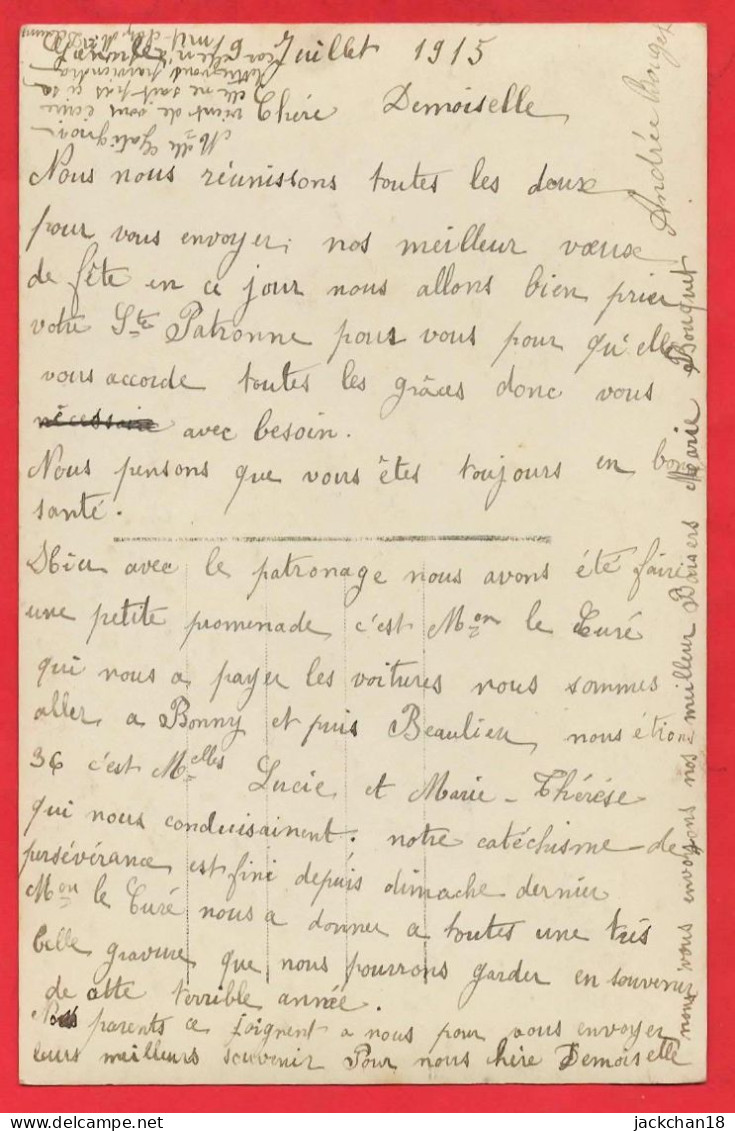 Juillet 1915
Chère Demoiselle
Nous nous réunissons toutes les deux
pour vous envoyer nos meilleur vœux
de fête en ce jour nous allons bien prier
votre Ste Patronne pour vous pour qu'elle
vous accorde toutes les grâces donc vous
nécessaire avec besoin.
Nous pensons que vous êtes toujours en bone
santé.
Hier avec le patronage nous avons été faire
une petite promenade c'est Mon le Curé
qui nous a payer les voitures nous sommes
aller a Bonny et puis Beaulieu nous étions
36 c'est Melles Lucie et Marie-Thérèse
qui nous conduisainent. notre catéchisme de
persévérance est fini depuis dimache dernier
Mon le Curé nous a donner a toutes une très
belle gravure que nous pourrons garder en souvenir
de cette terrible année.
Nos parents ce joignent a nous pour vous envoyer
leurs meilleurs souvenir Pour nous chère Demoiselle
nous vous envoyons nos meilleur Baisers Marie Bouquet
Andrée Rouget
Melle Gatignon
vient de vous écrire
elle ne sait pas si sa
lettre vous parviendra
jackchan18